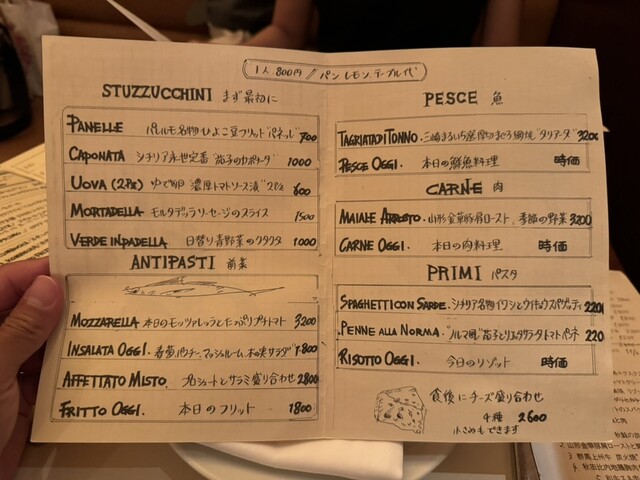 1人 800円 / パン レモン テーブル代
STUZZUCCHINI まず最初に
PANELLE パレルモ名物ひよこ豆フリット"パネッレ" 700
CAPONATA シチリア永世定番"茄子のカポナータ" 1000
UOVA (2Pz) ゆで卵 濃厚トマトソース漬 2Pz 600
MORTADELLA モルタデッラソーセージのスライス 1500
VERDE INPADELLA 日替り青野菜のクタクタ 1000
ANTIPASTI 前菜
MOZZARELLA 本日のモッツァレッラとたっぷりプチトマト 3200
INSALATA OGGI. 春菊、パンチェッタ、マッシュルーム、木の実サラダ 1800
AFFETTATO MISTO. プロシュートとサラミ盛り合わせ 2800
FRITTO OGGI. 本日のフリット 1800
PESCE 魚
TAGRIATA DI TONNO. 三崎まるいち 厚切まぐろ網焼"タリアータ" 3200
PESCE OGGI. 本日の鮮魚料理 時価
CARNE 肉
MAIALE ARROSTO. 山形金華豚肩ロースト、季節の野菜 3200
CARNE OGGI. 本日の肉料理 時価
PRIMI パスタ
SPAGHETTI CON SARDE. シチリア名物イワシとウイキョウスパゲッティ 220
PENNE ALLA NORMA. "ノルマ風"茄子とリコッタサラータトマトペンネ 220
RISOTTO OGGI. 今日のリゾット 時価
食後にチーズ盛り合わせ
4種 2600
小さめもできます